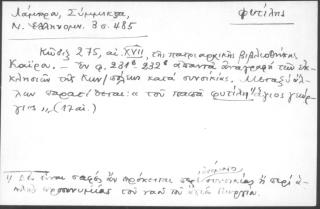 Λάμπρου, Σύμμικτα, φυτίλης
Ν. Ἑλληνομν. 3 σ. 485
Κῶδιξ 275, αἰ. XVII, τῆς πατριαρχικῆς βιβλιοθήκης
Καΐρου. — Ἐν φ. 231β 232α ἅπαντα ἀναγραφὴ τῶν ἐκ-
κλησιῶν τῆς Κων/πόλεως κατὰ συνοικίας. Μεταξὺ ἄλ-
λων παρατίθεται: α τοῦ παπᾶ φυτίλη ἅγιος γεώρ-
γιος », (17 αἰ.)
1) Δὲν εἶναι σαφὲς ἂν πρόκειται περὶ συνοικίας ἢ περὶ
προσωνυμίας τοῦ ναοῦ τοῦ ἁγίου Γεωργίου.